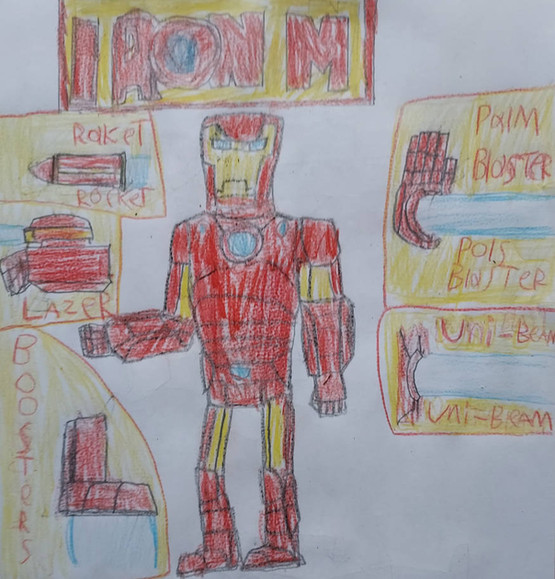 IRON M
RAKET
ROCKET
LAZER
BOOSTERS
PALM
BLASTER
POLS
BLASTER
UNI-BEAM
UNI-BEAM